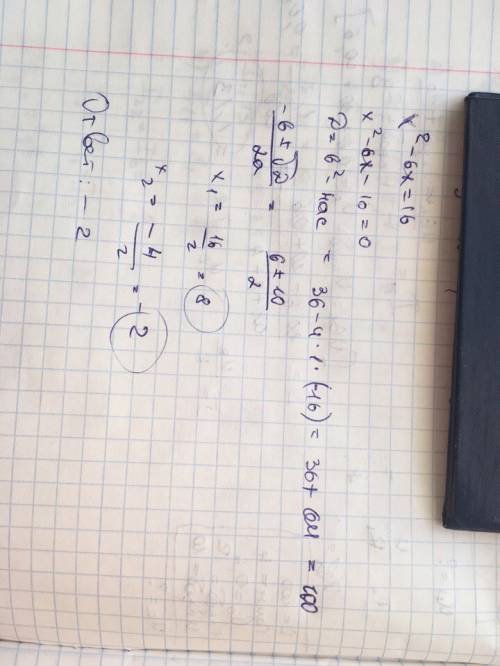 x² - 6x = 16
x² - 6x - 16 = 0
D = b² - 4ac = 36 - 4 · 1 · (-16) = 36 + 64 = 100
-b ± √D / 2a = 6 ± 10 / 2
x₁ = 16 / 2 = 8
x₂ = -4 / 2 = -2
Ответ: -2